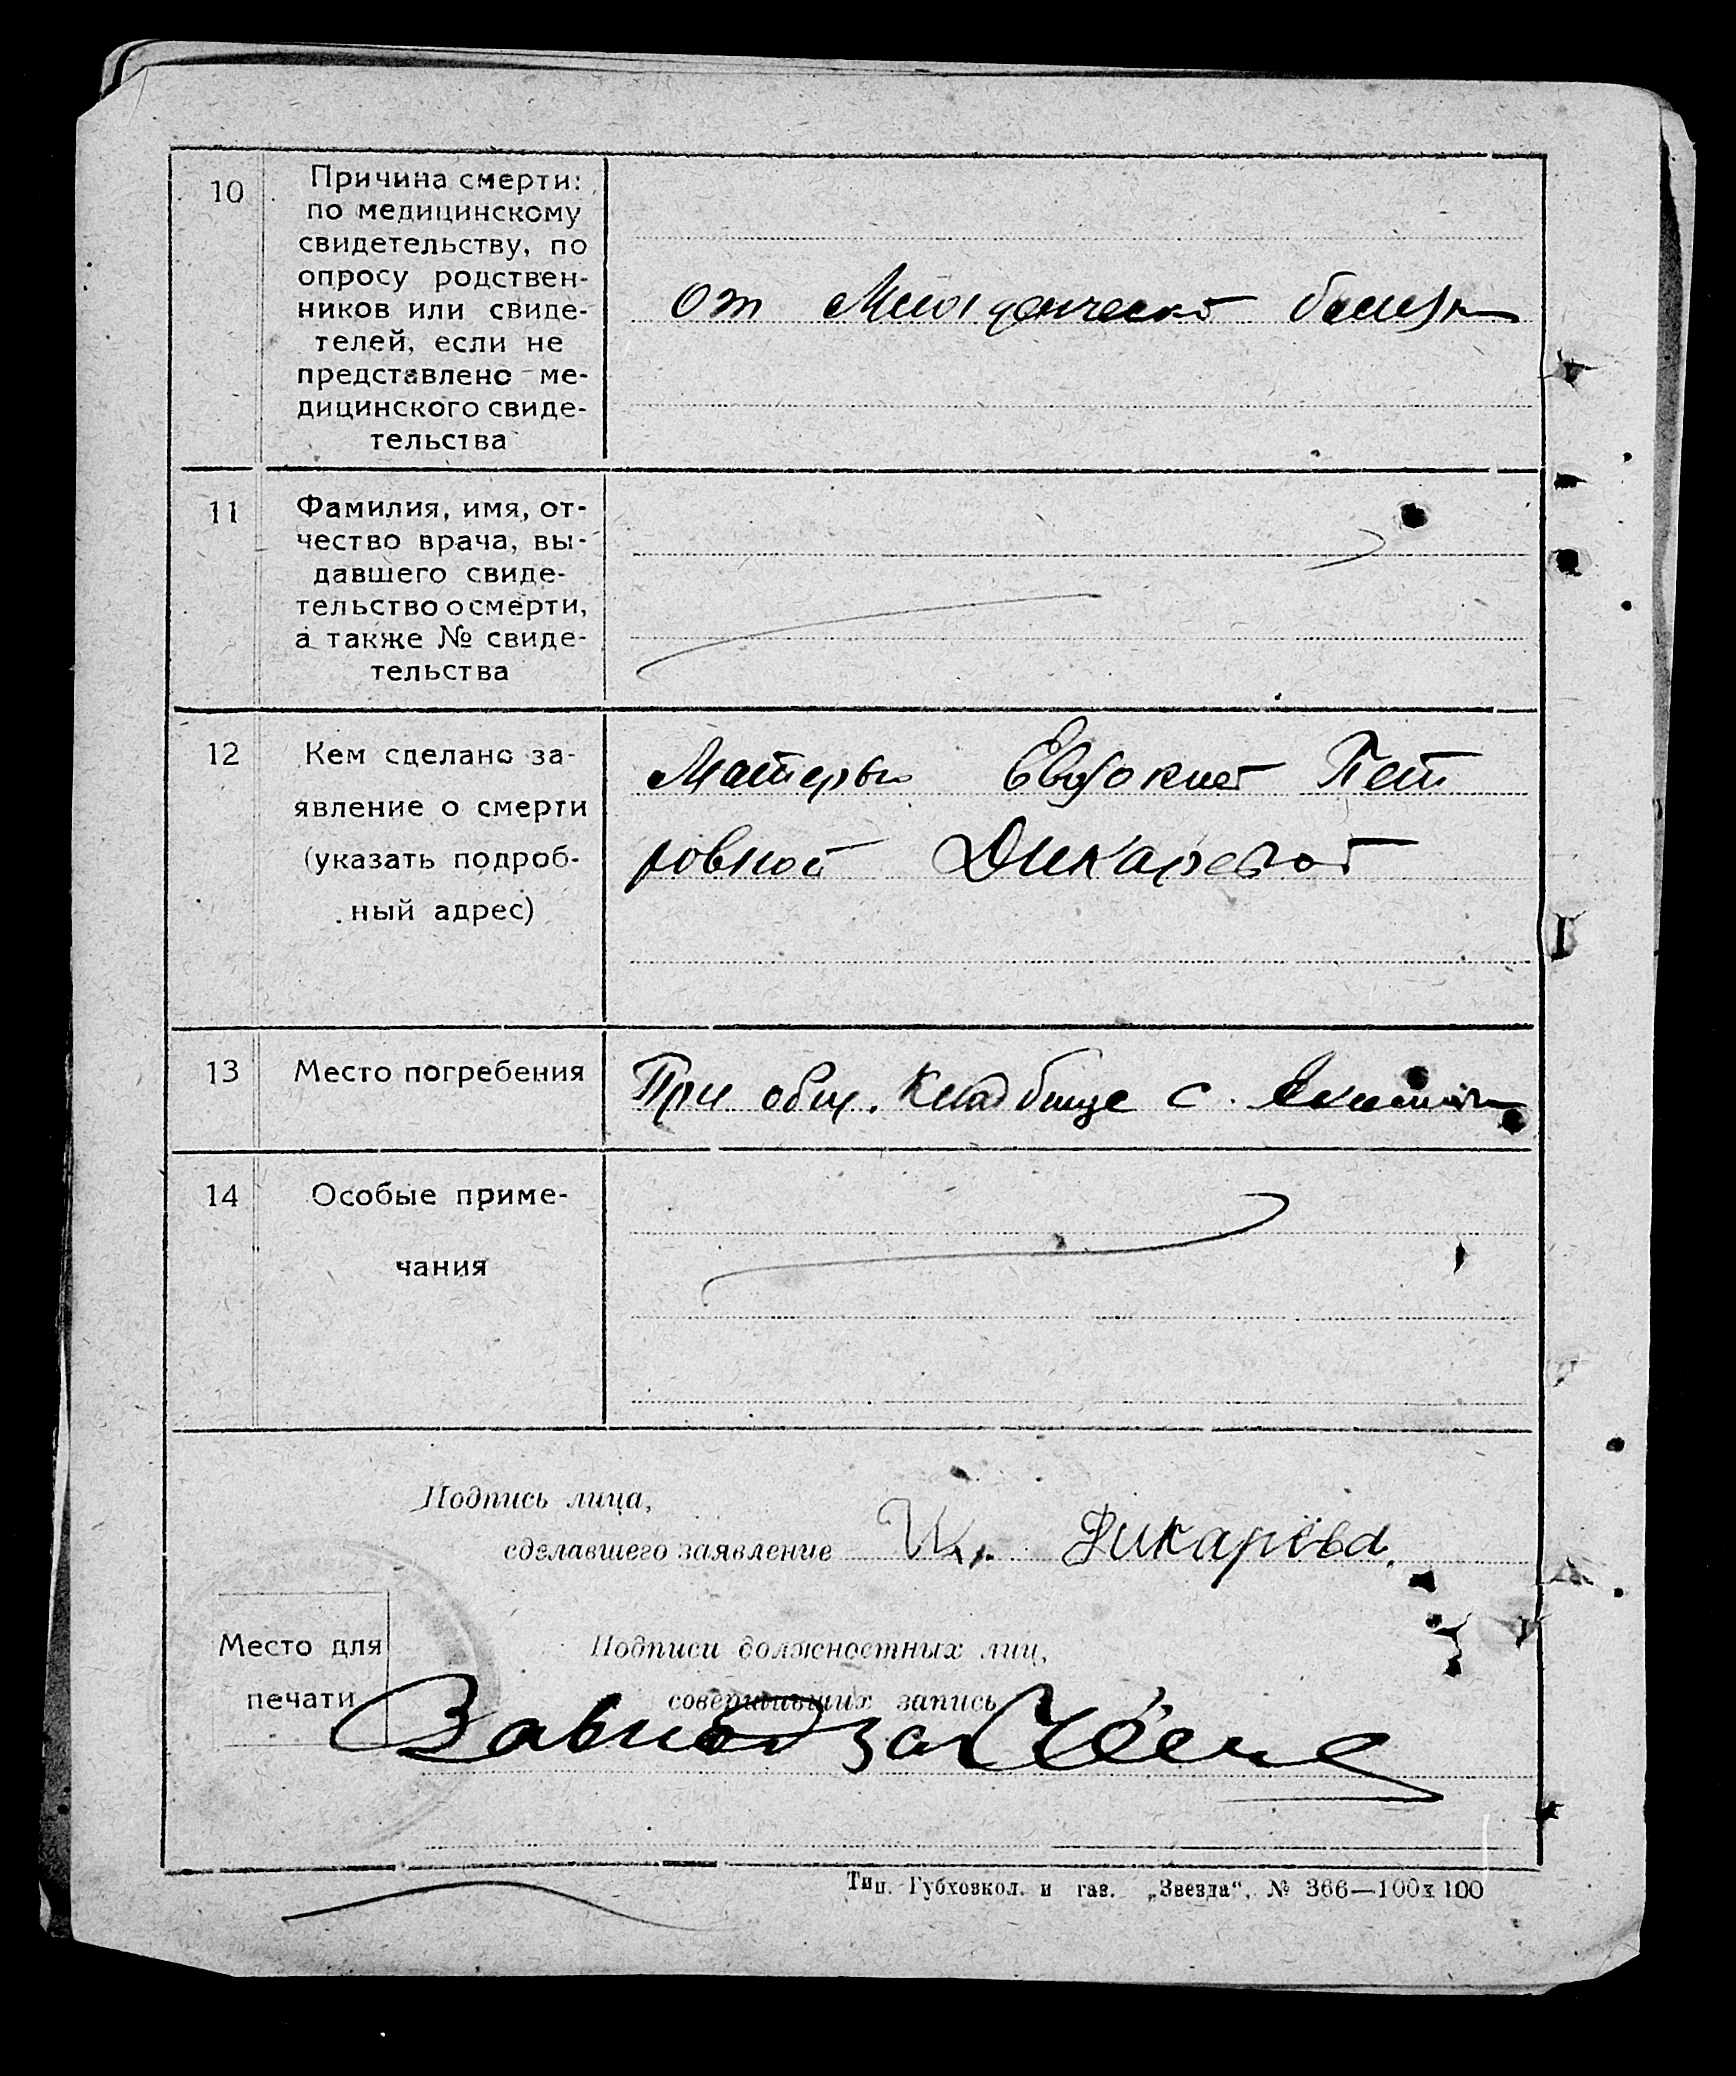 10
Причина смерти:
по медицинскому
свидетельству, по
опросу родствен-
ников или свиде-
телей, если не
представлено ме-
дицинского свиде-
тельства
от Младенческой болезни
11
Фамилия, имя, от-
чество врача, вы-
давшего свиде-
тельство о смерти,
а также № свиде-
тельства
12
Кем сделано за-
явление о смерти
(указать подроб-
ный адрес)
Матерью Евдокией Пет
ровной Дикаревой
13
Место погребения
При общ. Кладбище с.
14
Особые приме-
чания
Подпись лица,
сделавшего заявление Дикарева.
Место для
печати
Подписи должностных лиц,
совершивших запись
Тип. Губховкол. и газ. „Звезда“, № 366—100х100